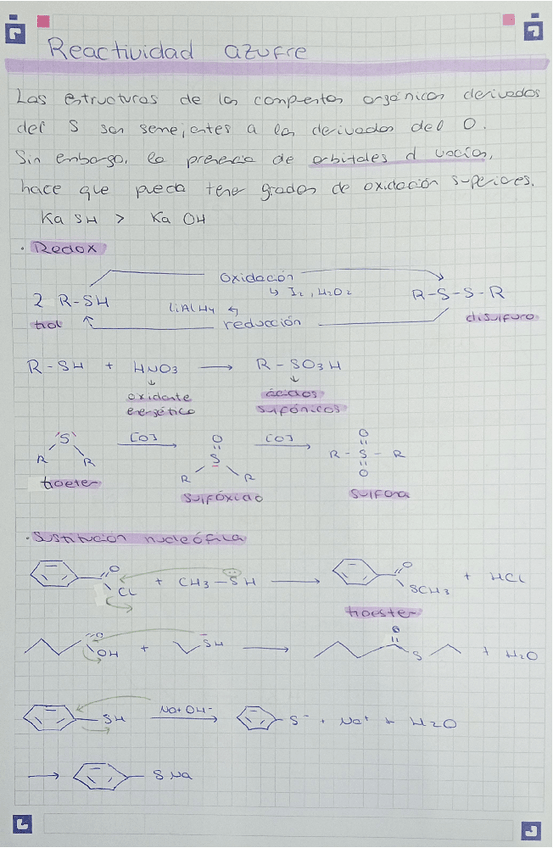 Reactividad azufre
Las estructuras de los compuestos orgánicos derivados
del S son semejantes a los derivados del O.
Sin embargo, la presencia de orbitales d vacíos,
hace que pueda tener grados de oxidación superiores.
Ka SH > Ka OH
· Redox
oxidación
↳ I2, H2O2
2 R-SH
R-S-S-R
LiAlH4
tiol
reducción
disulfuro
R-SH + HNO3 → R-SO3H
oxidante
energético
ácidos
sulfónicos
S [O] O S [O] O
R R R R R-S-R
O
tioeter
sulfóxido
sulfona
· Sustitución nucleófila
O Cl + CH3-SH → O SCH3 + HCl
tioester
O OH + SH → O S + H2O
SH Na+OH- → S- + Na+ + H2O
→ S Na